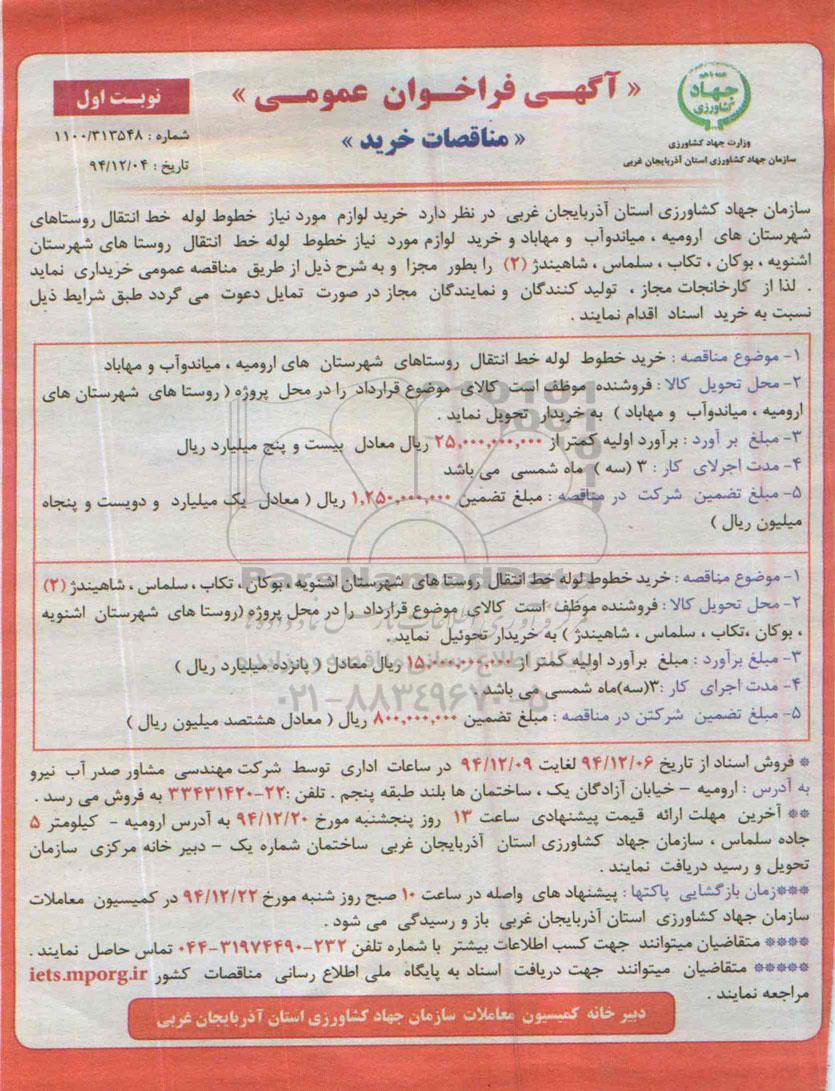 همه با هم
جهاد
کشاورزی
وزارت جهاد کشاورزی
سازمان جهاد کشاورزی استان آذربایجان غربی
« آگهـی فراخـوان عمومـی »
« مناقصات خرید »
نوبـت اول
شماره : ۱۱۰۰/۳۱۳۵۴۸
تاریخ : ۹۴/۱۲/۰۴
سازمان جهاد کشاورزی استان آذربایجان غربی در نظر دارد خرید لوازم مورد نیاز خطوط لوله خط انتقال روستاهای
شهرستان های ارومیه ، میاندوآب و مهاباد و خرید لوازم مورد نیاز خطوط لوله خط انتقال روستا های شهرستان
اشنویه ، بوکان ، تکاب ، سلماس ، شاهیندژ (۲) را بطور مجزا و به شرح ذیل از طریق مناقصه عمومی خریداری نماید
. لذا از کارخانجات مجاز ، تولید کنندگان و نمایندگان مجاز در صورت تمایل دعوت می گردد طبق شرایط ذیل
نسبت به خرید اسناد اقدام نمایند .
۱- موضوع مناقصه : خرید خطوط لوله خط انتقال روستاهای شهرستان های ارومیه ، میاندوآب و مهاباد
۲- محل تحویل کالا : فروشنده موظف است کالای موضوع قرارداد را در محل پروژه ( روستا های شهرستان های
ارومیه ، میاندوآب و مهاباد ) به خریدار تحویل نماید .
۳- مبلغ بر آورد : برآورد اولیه کمتر از ۲۵,۰۰۰,۰۰۰,۰۰۰ ریال معادل بیست و پنج میلیارد ریال
۴- مدت اجرلای کار : ۳ (سه ) ماه شمسی می باشد
۵- مبلغ تضمین شرکت در مناقصه : مبلغ تضمین ۱,۲۵۰,۰۰۰,۰۰۰ ریال ( معادل یک میلیارد و دویست و پنجاه
میلیون ریال )
۱- موضوع مناقصه : خرید خطوط لوله خط انتقال روستا های شهرستان اشنویه ، بوکان ، تکاب ، سلماس ، شاهیندژ (۲)
۲- محل تحویل کالا : فروشنده موظف است کالای موضوع قرارداد را در محل پروژه (روستا های شهرستان اشنویه
، بوکان ،تکاب ، سلماس ، شاهیندژ ) به خریدار تحوئیل نماید .
۳- مبلغ برآورد : مبلغ برآورد اولیه کمتر از ۱۵,۰۰۰,۰۰۰,۰۰۰ ریال معادل ( پانزده میلیارد ریال )
۴- مدت اجرای کار :۳(سه)ماه شمسی می باشد .
۵- مبلغ تضمین شرکتن در مناقصه : مبلغ تضمین ۸۰۰,۰۰۰,۰۰۰ ریال ( معادل هشتصد میلیون ریال )
ParsNamadData
۰۲۱-۸۸۳۴۹۶۷۰-۵
* فروش اسناد از تاریخ ۹۴/۱۲/۰۶ لغایت ۹۴/۱۲/۰۹ در ساعات اداری توسط شرکت مهندسی مشاور صدر آب نیرو
به آدرس : ارومیه – خیابان آزادگان یک ، ساختمان ها بلند طبقه پنجم . تلفن :۲۲-۳۳۴۳۱۴۲۰ به فروش می رسد .
** آخرین مهلت ارائه قیمت پیشنهادی ساعت ۱۳ روز پنجشنبه مورخ ۹۴/۱۲/۲۰ به آدرس ارومیه – کیلومتر ۵
جاده سلماس ، سازمان جهاد کشاورزی استان آذربایجان غربی ساختمان شماره یک – دبیر خانه مرکزی سازمان
تحویل و رسید دریافت نمایند .
***زمان بازگشایی پاکتها : پیشنهاد های واصله در ساعت ۱۰ صبح روز شنبه مورخ ۹۴/۱۲/۲۲ در کمیسیون معاملات
سازمان جهاد کشاورزی استان آذربایجان غربی باز و رسیدگی می شود .
**** متقاضیان میتوانند جهت کسب اطلاعات بیشتر با شماره تلفن ۲۳۲-۳۱۹۷۴۴۹۰-۰۴۴ تماس حاصل نمایند .
***** متقاضیان میتوانند جهت دریافت اسناد به پایگاه ملی اطلاع رسانی مناقصات کشور iets.mporg.ir
مراجعه نمایند .
دبیر خانه کمیسیون معاملات سازمان جهاد کشاورزی استان آذربایجان غربی